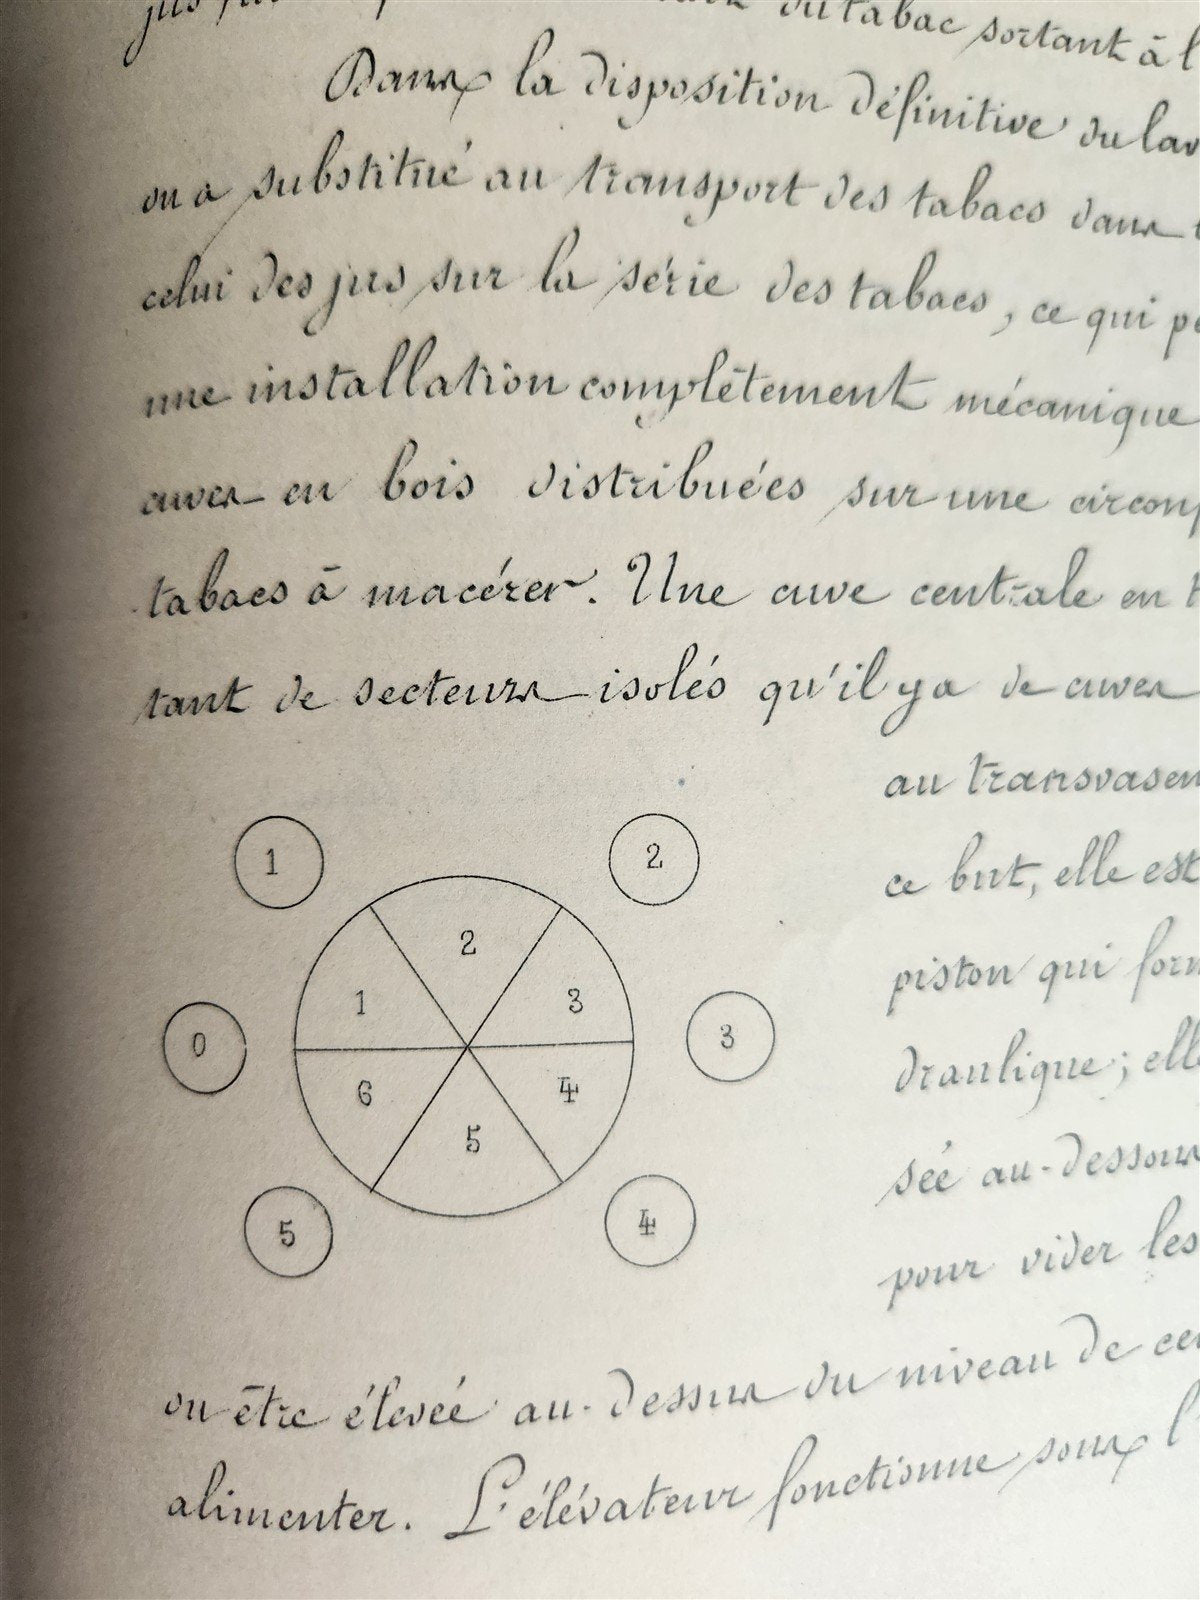 du tabac sortant à l
Dans la disposition définitive du lav
on a substitué au transport des tabacs dans
celui des jus sur la série des tabacs, ce qui pe
une installation complètement mécanique
cuves en bois distribuées sur une circonf
tabacs à macérer. Une cuve centrale en t
tant de secteurs isolés qu'il y a de cuves
au transvasem
ce but, elle est
piston qui form
draulique; elle
sée au-dessous
pour vider les
1
2
2
1
3
0
3
6
4
5
5
4
ou être élevée au-dessus du niveau de ce
alimenter. L'élévateur fonctionne sous l'